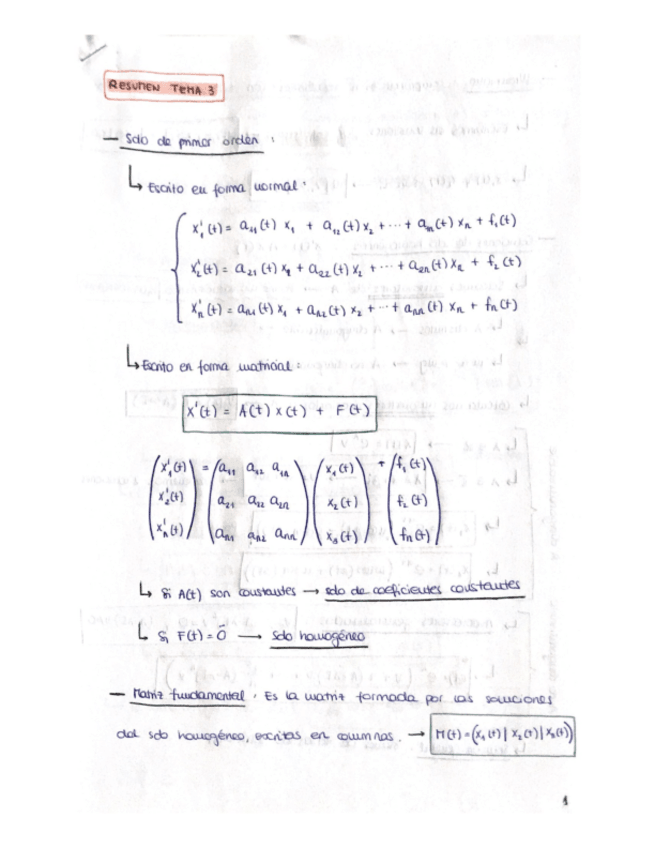 RESUMEN TEMA 3
— Sdo de primer orden :
↳ Escrito en forma normal :
x₁'(t) = a₁₁(t) x₁ + a₁₂(t) x₂ + ... + a₁ₙ(t) xₙ + f₁(t)
x₂'(t) = a₂₁(t) x₁ + a₂₂(t) x₂ + ... + a₂ₙ(t) xₙ + f₂(t)
xₙ'(t) = aₙ₁(t) x₁ + aₙ₂(t) x₂ + ... + aₙₙ(t) xₙ + fₙ(t)
↳ Escrito en forma matricial :
X'(t) = A(t) x(t) + F(t)
(x₁'(t)) = (a₁₁ a₁₂ a₁ₙ) (x₁(t)) + (f₁(t))
(x₂'(t)) (a₂₁ a₂₂ a₂ₙ) (x₂(t)) (f₂(t))
(xₙ'(t)) (aₙ₁ aₙ₂ aₙₙ) (x₃(t)) (fₙ(t))
↳ Si A(t) son constantes → sdo de coeficientes constantes
↳ Si F(t) = 0̄ → sdo homogéneo
— Matriz fundamental : Es la matriz formada por las soluciones
del sdo homogéneo, escritas en columnas. → M(t) = (x₁(t) | x₂(t) | x₃(t))
1